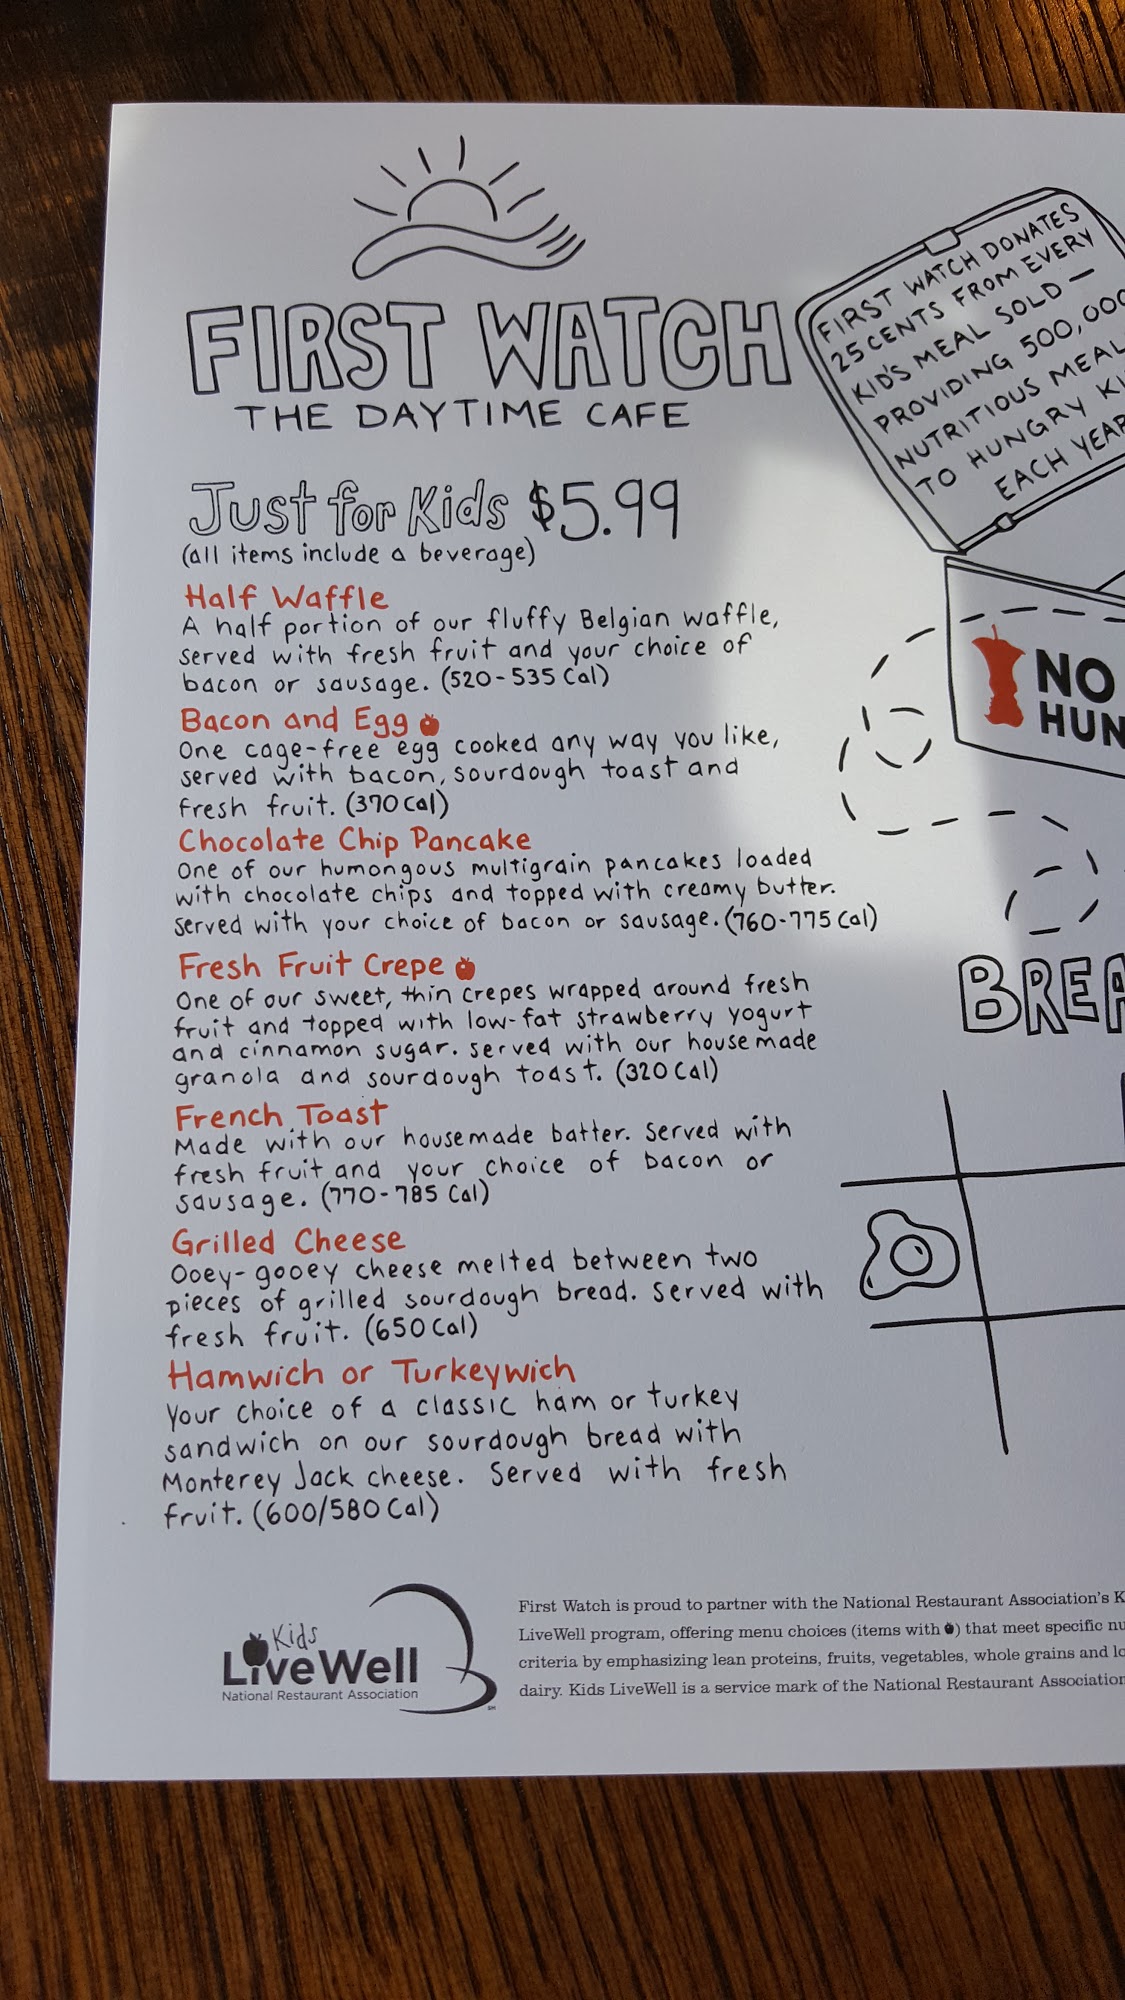 FIRST WATCH
THE DAYTIME CAFE
FIRST WATCH DONATES
25 CENTS FROM EVERY
KID'S MEAL SOLD —
PROVIDING 500,000
NUTRITIOUS MEAL
TO HUNGRY KI
EACH YEAR
NO
HUN
Just for Kids $5.99
(all items include a beverage)
Half Waffle
A half portion of our fluffy Belgian waffle,
served with fresh fruit and your choice of
bacon or sausage. (520-535 Cal)
Bacon and Egg
One cage-free egg cooked any way you like,
served with bacon, sourdough toast and
fresh fruit. (370 Cal)
Chocolate Chip Pancake
One of our humongous multigrain pancakes loaded
with chocolate chips and topped with creamy butter.
Served with your choice of bacon or sausage. (760-775 Cal)
Fresh Fruit Crepe
One of our sweet, thin crepes wrapped around fresh
fruit and topped with low-fat strawberry yogurt
and cinnamon sugar. Served with our housemade
granola and sourdough toast. (320 Cal)
French Toast
Made with our housemade batter. Served with
fresh fruit and your choice of bacon or
sausage. (770-785 Cal)
Grilled Cheese
Ooey-gooey cheese melted between two
pieces of grilled sourdough bread. Served with
fresh fruit. (650 Cal)
Hamwich or Turkeywich
Your choice of a classic ham or turkey
sandwich on our sourdough bread with
Monterey Jack cheese. Served with fresh
fruit. (600/580 Cal)
BREA
Kids
LiveWell
National Restaurant Association
SM
First Watch is proud to partner with the National Restaurant Association's K
LiveWell program, offering menu choices (items with ) that meet specific nu
criteria by emphasizing lean proteins, fruits, vegetables, whole grains and lo
dairy. Kids LiveWell is a service mark of the National Restaurant Association